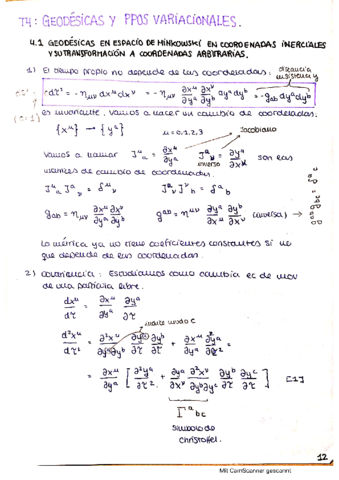 T4: GEODÉSICAS Y PPOS VARIACIONALES.
4.1 GEODÉSICAS EN ESPACIO DE MINKOWSKI EN COORDENADAS INERCIALES
Y SU TRANSFORMACIÓN A COORDENADAS ARBITRARIAS.
1) El tiempo propio no depende de las coordenadas: distancia
dτ² = - η_μν dx^μ dx^ν = - η_μν ∂x^μ/∂y^a ∂x^ν/∂y^b dy^a dy^b = - g_ab dy^a dy^b
es invariante. Vamos a hacer un cambio de coordenadas:
{x^μ} → {y^a} μ = 0,1,2,3 Jacobiano
Vamos a llamar J^μ_a = ∂x^μ/∂y^a J^a_μ = ∂y^a/∂x^μ son las
inverso
matrices de cambio de coordenadas.
J^μ_a J^a_ν = δ^μ_ν J^a_ν J^ν_b = δ^a_b
g_ab = η_μν ∂x^μ/∂y^a ∂x^ν/∂y^b g^ab = η^μν ∂y^a/∂x^μ ∂y^b/∂x^ν (inversa)
La métrica ya no tiene coeficientes constantes si no
que depende de las coordenadas.
2) Covariancia: Estudiamos como cambia ec de mov
de una partícula libre.
dx^μ/dτ = ∂x^μ/∂y^a ∂y^a/∂τ
indice mudo c
d²x^μ/dτ² = ∂²x^μ/∂y^a∂y^b ∂y^a/∂τ ∂y^b/∂τ + ∂x^μ/∂y^a ∂²y^a/∂τ²
= ∂x^μ/∂y^a [ ∂²y^a/∂τ² + ∂y^a/∂x^ν ∂²x^ν/∂y^b∂y^c ∂y^b/∂τ ∂y^c/∂τ ] [1]
Γ^a_bc
símbolo de
Christoffel.
12
Mit CamScanner gescannt